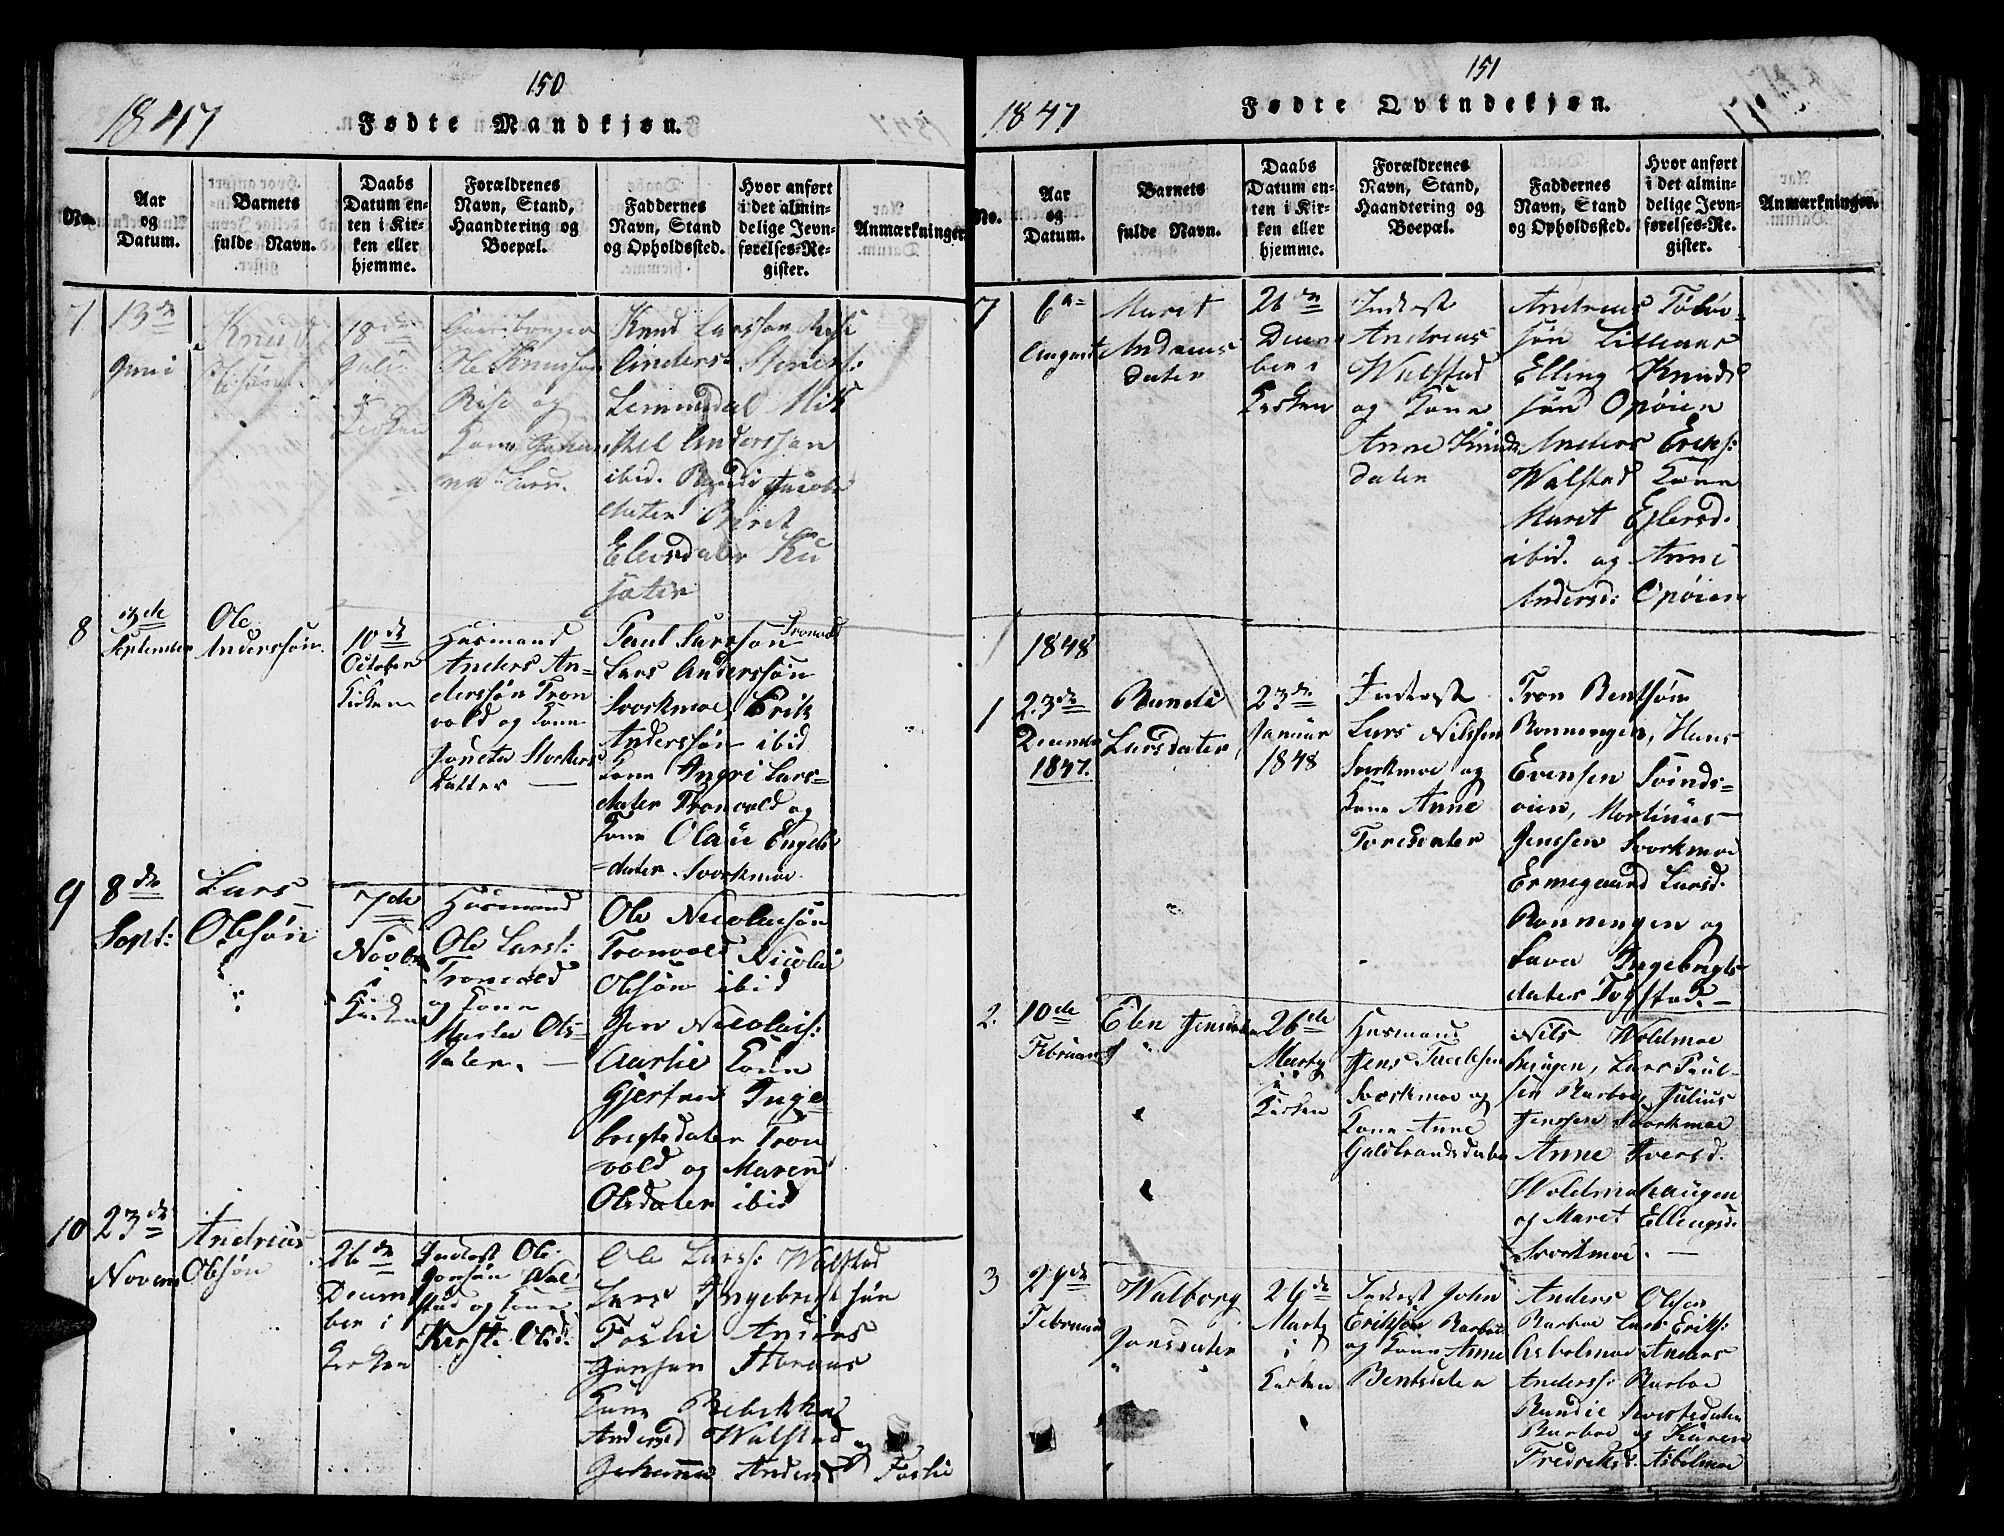 150
1847
Fødte Mandkjøn.
No.
Aar
og
Datum.
Barnets
fulde Navn.
Daabs
Datum en-
ten i Kir-
ken eller
hjemme.
Forældrenes
Navn, Stand,
Haandtering og
Boepæl.
Faddernes
Navn, Stand
og Opholdssted.
Hvor anført
i det almin-
delige Jevn-
førelses-Re-
gister.
Anmærkninger.
7
13de
Juni
Knud
Olsøn
18de
Juli
i
Kirken
Ole Knudsøn
Rise og
Kone
Knud Larssøn Rise
Anders
Lemmedal Mik
kel Anderssøn
ibid. Randi Jacobs
dater Beret
Elevsdater Ku
sater
8
13de
September
Ole
Anderssøn
10de
October
Kirken
Husmand
Anders An-
derssøn Tron
vold og Kone
Joneta Storkers
datter —
Paul Larssøn Tronvold
Lars Anderssøn
Svorkmoe, Erik
Anderssøn ibid
Kone Ingri Lars-
dater Tronvold og
Kone Olau Engels
-dater. Svorkmoe
9
8de
Sept:
Lars
Olesøn
7de
Novbr
i
Kirken
Husmand
Ole Larss:
Tronvold
og Kone
Marta Ols-
dater. —
Ole Nicolaisøn
Tronvold Nicolai
Olesøn ibid
Jen Nicolais:
Aarlie Kone
Gjertru Inge-
brigtsdater Tron
vold og Maren
Olsdater ibid
10
23de
Novem
Andreas
Olesøn
26de
Decem
ber i
Kirken
Inderst Ole
Jonsøn Wal
stad og Kone
Kirsti Olsd.
Ole Larss: Walstad
Lars Ingebrigtsøn
Foslie Anders
Jensen Storaas
Kone Rebekka
Andersd Walstad og
Johanna Anders Foslie
151
1847
Fødte Qvindekjøn.
No.
Aar
og
Datum.
Barnets
fulde Navn.
Daabs
Datum en-
ten i Kir-
ken eller
hjemme.
Forældrenes
Navn, Stand,
Haandtering og
Boepæl.
Faddernes
Navn, Stand
og Opholdssted.
Hvor anført
i det almin-
delige Jevn-
førelses-Re-
gister.
Anmærkninger.
7
6te
August
Marit
Andreas
dater
26de
Decem
ber i
Kirken
Inderst
Andreas
Walstad
og Kone
Anne Knuds
dater
Andreas Tobia-
søn Lilleaas
Elling Knud
søn Opøien
Anders Eriks:
Walstad Kone
Marit Ejlersd.
ibid. og Anne
Andersd: Opøien
1848
1
23de
December
1847.
Randi
Larsdater
23de
Januar
1848
Inderst
Lars Nilssen
Svorkmoe og
Kone Anne
Toresdater
Tron Bentsøn
Ronningen, Hans
Evensen Svinds-
øien, Martinus
Jenssen Svorkmoe
Ermegaard Larsd.
Ronningen og
Lava Ingebrigts
dater Togstad. —
2.
10de
Februar
Elen Jensdater
26de
Marts
i
Kirken
Husmand
Jens
Svorkmoe og
Kone Anne
Guldbrandsdater
Nils Woldmoe
haugen, Lars Paul-
sen Rarboe, Julius
Jenssen Svorkmoe
Anne Iversd.
Woldmohaugen
og Maret Ellingsd.
Svorkmoe. —
3
Februar
Walborg
Jonsdater
26de
Marts
i
Kirken
Inderst John
Erikssøn Rarboe
og Kone Anne
Bentsdater
Anders Olsen
Rarboe Lars Eriks:
Asbølmoe Anders
Anderss: Rarboe
Randie Sivertsdater
Rarboe og Karen
Fredriksd. Asbølmoe